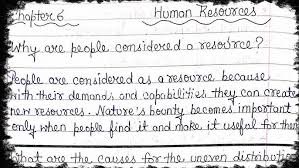 Chapter 6 Human Resources
Why are people considered a resource?
People are considered as a resource because
with their demands and capabilities they can create
new resources. Nature's bounty becomes important
only when people find it and make it useful for them
What are the causes for the uneven distributi